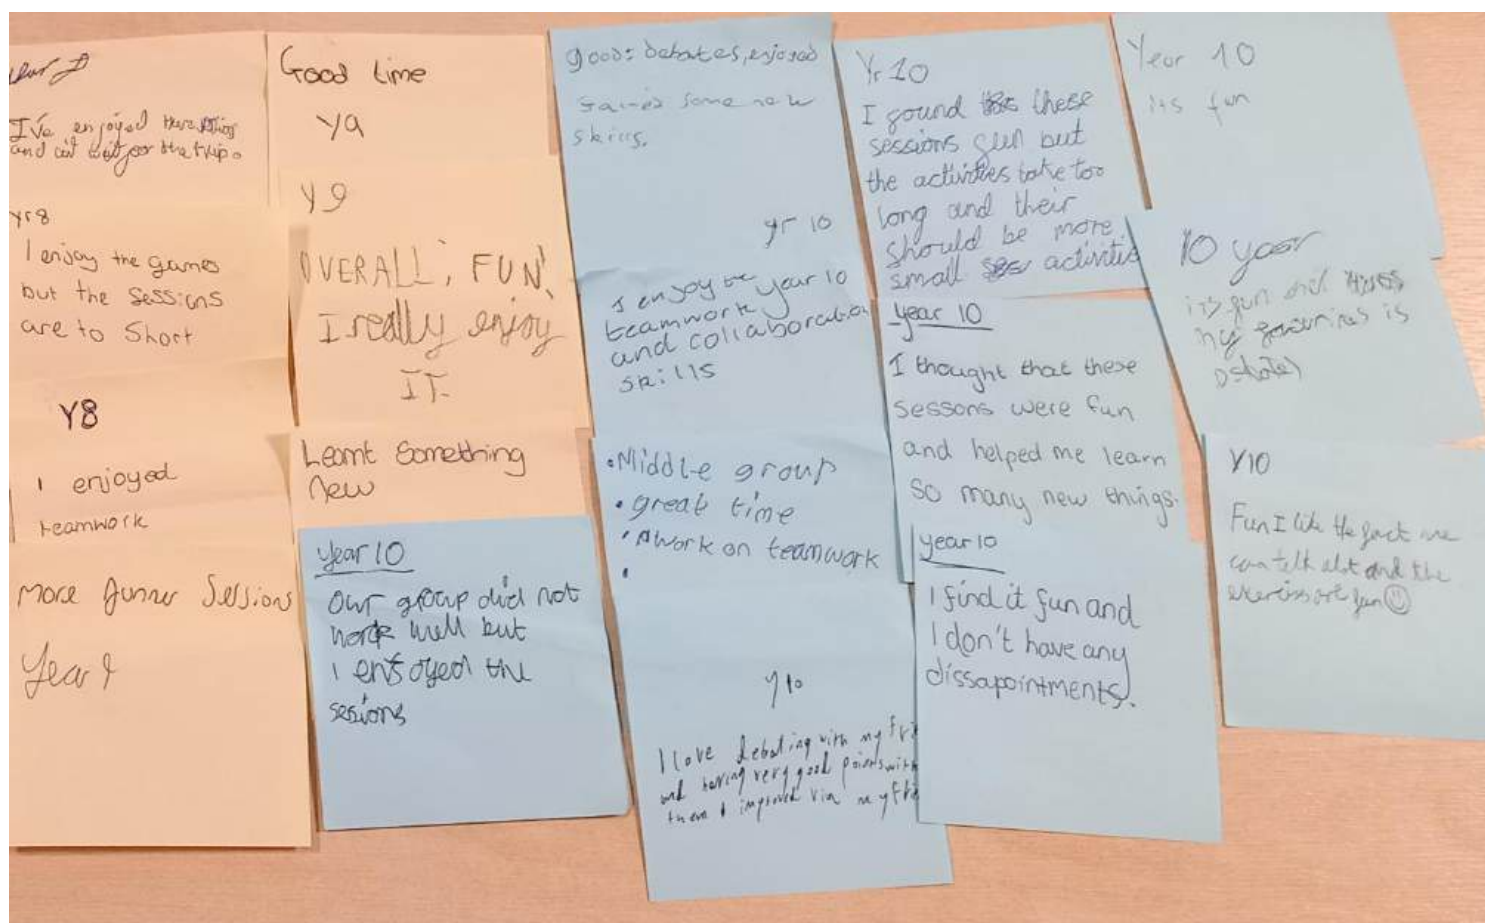 I've enjoyed
and wait for the trip.
yr8
I enjoy the games
but the sessions
are to short
Y8
I enjoyed
teamwork
More funner Sessions
Year
Good time
Y9
Y9
OVERALL, FUN,
I really enjoy
IT.
Learnt Something
New
year 10
Our group did not
work well but
I enjoyed the
sesions
good: debates, enjoyed
some new
skills.
yr 10
I enjoy the year 10
teamwork
and collaboration
skills
• Middle group
• great time
• work on teamwork
•
y10
I love debating with my
and having very good points with
them & improved via my
Yr 10
I found these
sessions fun but
the activities take too
long and their
should be more
small activities
year 10
I thought that these
sessons were fun
and helped me learn
so many new things.
year 10
I find it fun and
I don't have any
dissapointments.
Year 10
its fun
10 year
its fun and
my is
Y10
Fun I like the fact we
can talk alot and the
are fun